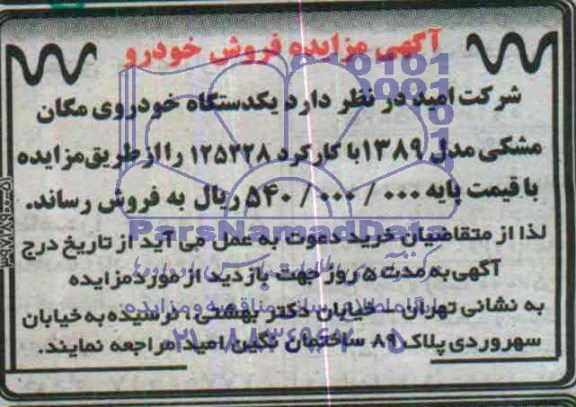 آگهی مزایده فروش خودرو
شرکت امید در نظر دارد یکدستگاه خودروی مگان
مشکی مدل ۱۳۸۹ با کارکرد ۱۲۵۲۲۸ را از طریق مزایده
با قیمت پایه ۵۴۰/۰۰۰/۰۰۰ ریال به فروش رساند.
لذا از متقاضیان خرید دعوت به عمل می آید از تاریخ درج
آگهی به مدت ۵ روز جهت بازدید از مورد مزایده
به نشانی تهران - خیابان دکتر بهشتی، نرسیده به خیابان
سهروردی پلاک ۸۹ ساختمان نگین امید مراجعه نمایند.
ParsNamadData